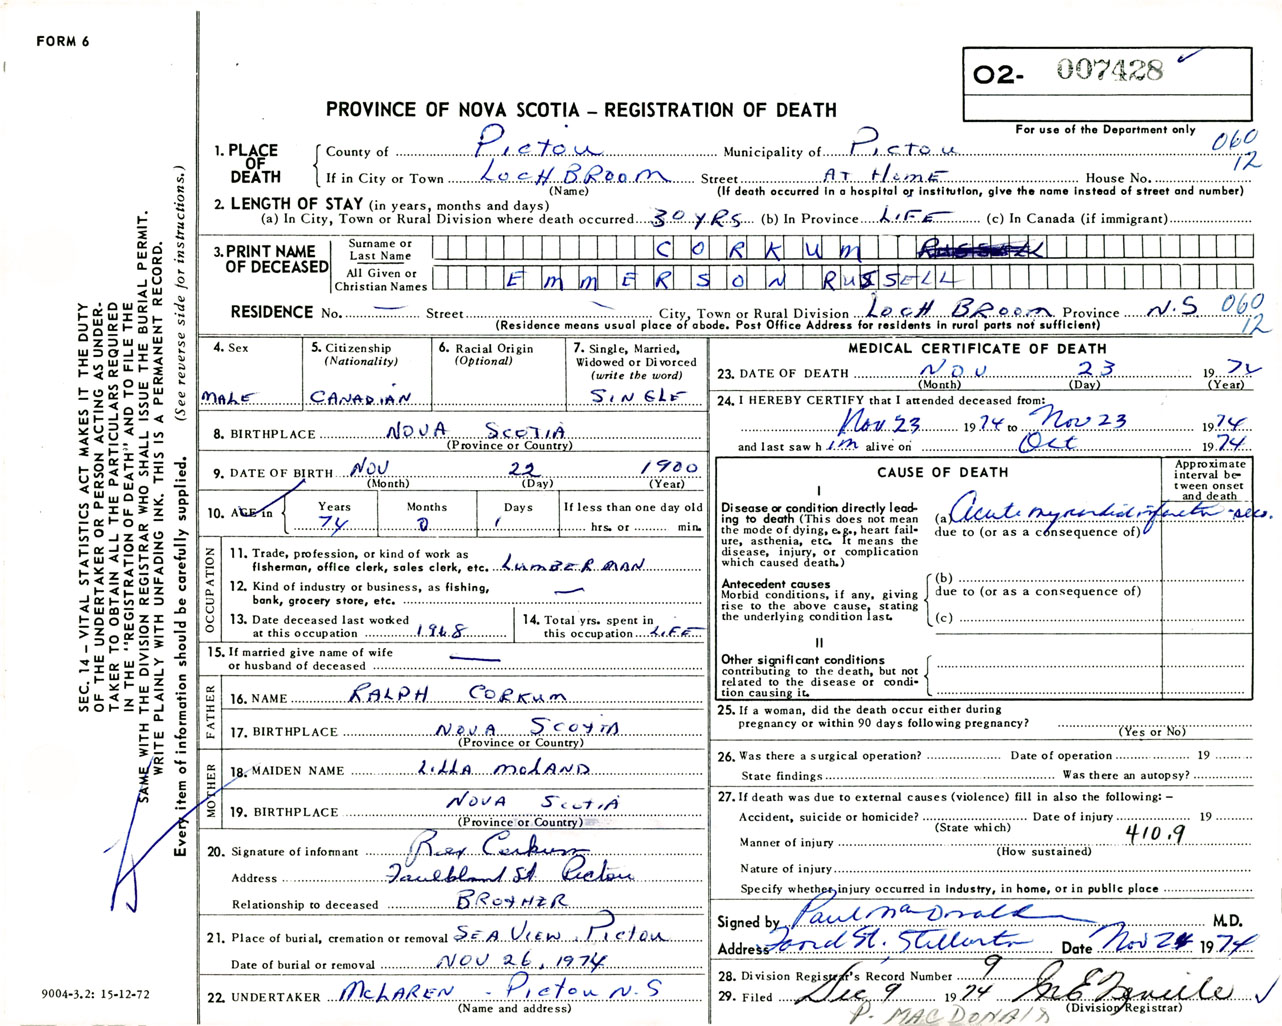 FORM 6
O2- 007428
PROVINCE OF NOVA SCOTIA – REGISTRATION OF DEATH
For use of the Department only
060
12
1. PLACE OF DEATH
County of Pictou Municipality of Pictou
If in City or Town LOCH BROOM Street AT HOME House No.
(Name) (If death occurred in a hospital or institution, give the name instead of street and number)
2. LENGTH OF STAY (in years, months and days)
(a) In City, Town or Rural Division where death occurred 30 YRS (b) In Province LIFE (c) In Canada (if immigrant)
3. PRINT NAME OF DECEASED
Surname or Last Name CORKUM
All Given or Christian Names EMMERSON RUSSELL
RESIDENCE No. — Street — City, Town or Rural Division LOCH BROOM Province N.S 060
(Residence means usual place of abode. Post Office Address for residents in rural parts not sufficient) 12
4. Sex
MALE
5. Citizenship
(Nationality)
CANADIAN
6. Racial Origin
(Optional)
7. Single, Married, Widowed or Divorced
(write the word)
SINGLE
8. BIRTHPLACE NOVA SCOTIA
(Province or Country)
9. DATE OF BIRTH NOV 22 1900
(Month) (Day) (Year)
10. AGE in
Years Months Days If less than one day old
74 0 1 hrs. or min.
OCCUPATION
11. Trade, profession, or kind of work as
fisherman, office clerk, sales clerk, etc. LUMBERMAN
12. Kind of industry or business, as fishing,
bank, grocery store, etc. —
13. Date deceased last worked
at this occupation 1968
14. Total yrs. spent in
this occupation LIFE
15. If married give name of wife
or husband of deceased —
FATHER
16. NAME RALPH CORKUM
17. BIRTHPLACE NOVA SCOTIA
(Province or Country)
MOTHER
18. MAIDEN NAME LILLA MCLAND
19. BIRTHPLACE NOVA SCOTIA
(Province or Country)
20. Signature of informant Roy Corkum
Address St Pictou
Relationship to deceased BROTHER
21. Place of burial, cremation or removal SEAVIEW. Pictou
Date of burial or removal NOV 26, 1974
22. UNDERTAKER McLAREN - Pictou N.S
(Name and address)
MEDICAL CERTIFICATE OF DEATH
23. DATE OF DEATH NOV 23 1974
(Month) (Day) (Year)
24. I HEREBY CERTIFY that I attended deceased from:
Nov. 23 1974 to Nov 23 1974
and last saw him alive on Oct 1974
CAUSE OF DEATH
Approximate interval between onset and death
I
Disease or condition directly leading to death (This does not mean the mode of dying, e.g., heart failure, asthenia, etc. It means the disease, injury, or complication which caused death.)
(a) Acute myocardial infarction - secs.
due to (or as a consequence of)
Antecedent causes
Morbid conditions, if any, giving rise to the above cause, stating the underlying condition last.
(b)
due to (or as a consequence of)
(c)
II
Other significant conditions
contributing to the death, but not related to the disease or condition causing it.
25. If a woman, did the death occur either during
pregnancy or within 90 days following pregnancy?
(Yes or No)
26. Was there a surgical operation? Date of operation 19
State findings Was there an autopsy?
27. If death was due to external causes (violence) fill in also the following: –
Accident, suicide or homicide? Date of injury 19
(State which)
Manner of injury 410.9
(How sustained)
Nature of injury
Specify whether injury occurred in industry, in home, or in public place
Signed by Paul MacDonald M.D.
Address Foord St. Stellarton Date Nov 24 1974
28. Division Registrar's Record Number 9
29. Filed Dec 9 1974
(Division Registrar)
P. MACDONALD
SEC. 14 – VITAL STATISTICS ACT MAKES IT THE DUTY
OF THE UNDERTAKER OR PERSON ACTING AS UNDER-
TAKER TO OBTAIN ALL THE PARTICULARS REQUIRED
IN THE "REGISTRATION OF DEATH" AND TO FILE THE
SAME WITH THE DIVISION REGISTRAR WHO SHALL ISSUE THE BURIAL PERMIT.
WRITE PLAINLY WITH UNFADING INK. THIS IS A PERMANENT RECORD.
Every item of information should be carefully supplied. (See reverse side for instructions.)
9004-3.2: 15-12-72